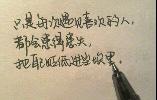 只是再次遇见喜欢的人,
都会患得患失,
把自己放低进尘埃里.